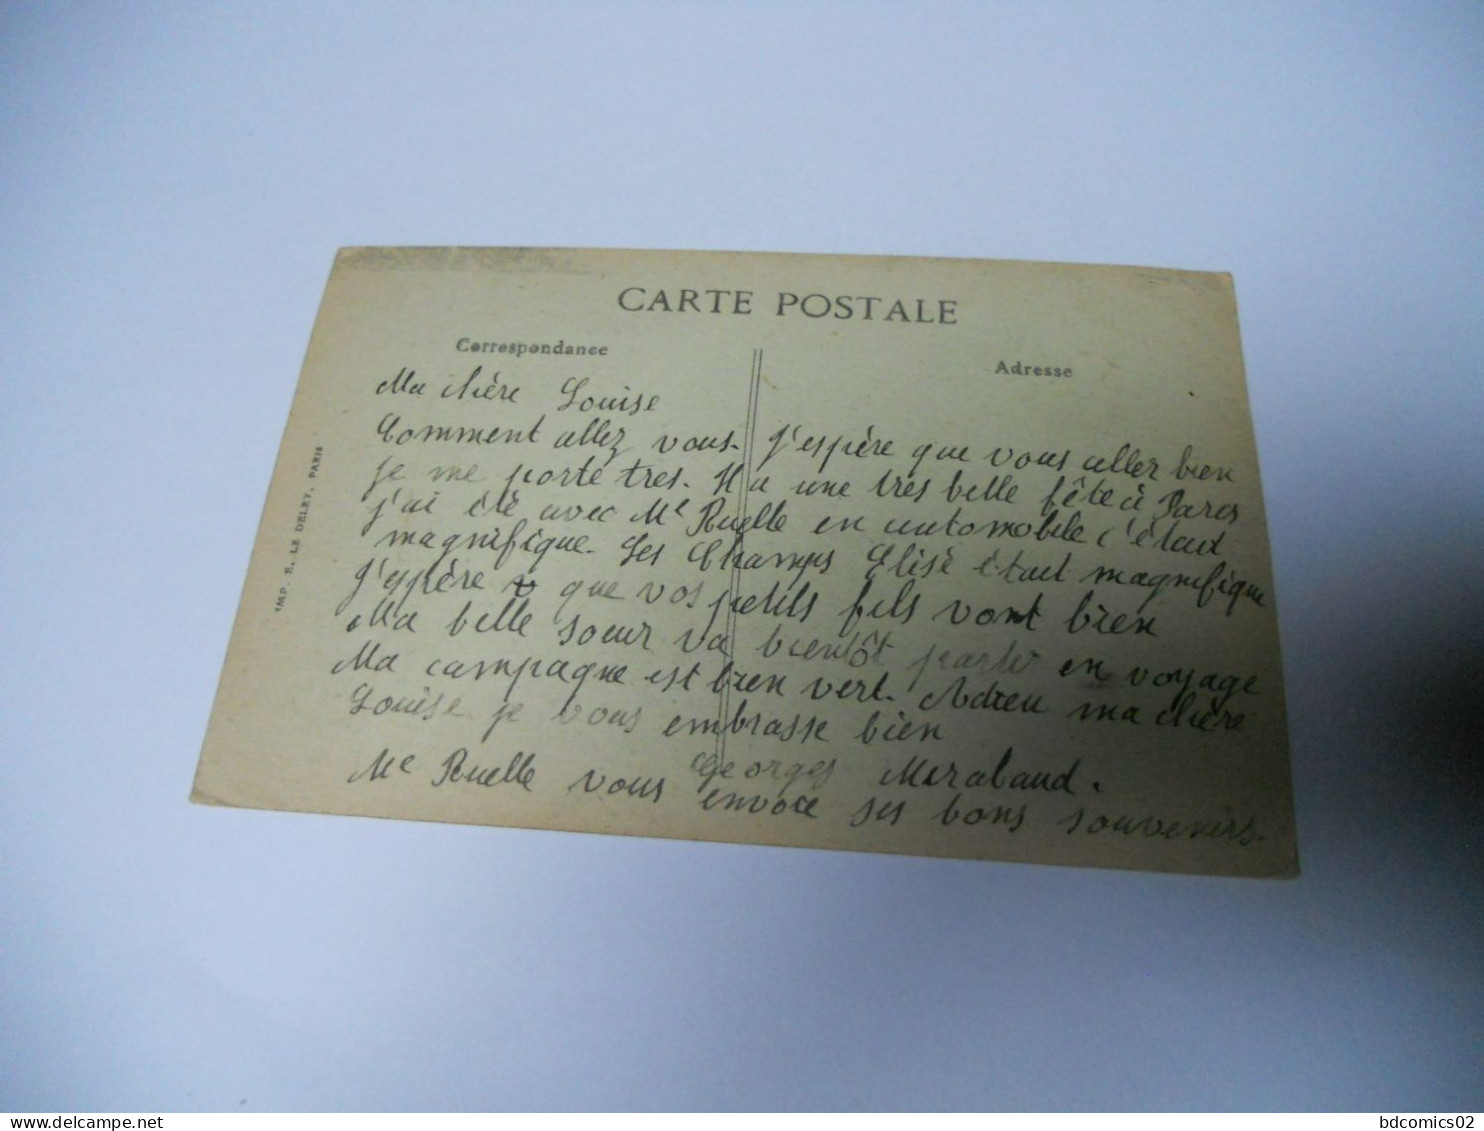 CARTE POSTALE
Correspondance
Adresse
Ma chère Louise
Comment allez vous. J'espère que vous aller bien
je me porte tres. Il a une très belle fête à Paris
j'ai été avec Me Ruelle en automobile c'était
magnifique. Les Champs Elisé était magnifique
J'espère que vos petits fils vont bien
Ma belle soeur va bientôt partir en voyage
Ma campagne est bien vert. Adieu ma chère
Louise je vous embrasse bien
Georges Mirabaud.
Me Ruelle vous envoie ses bons souvenirs.
IMP. E. LE DELEY, PARIS
bdcomics02